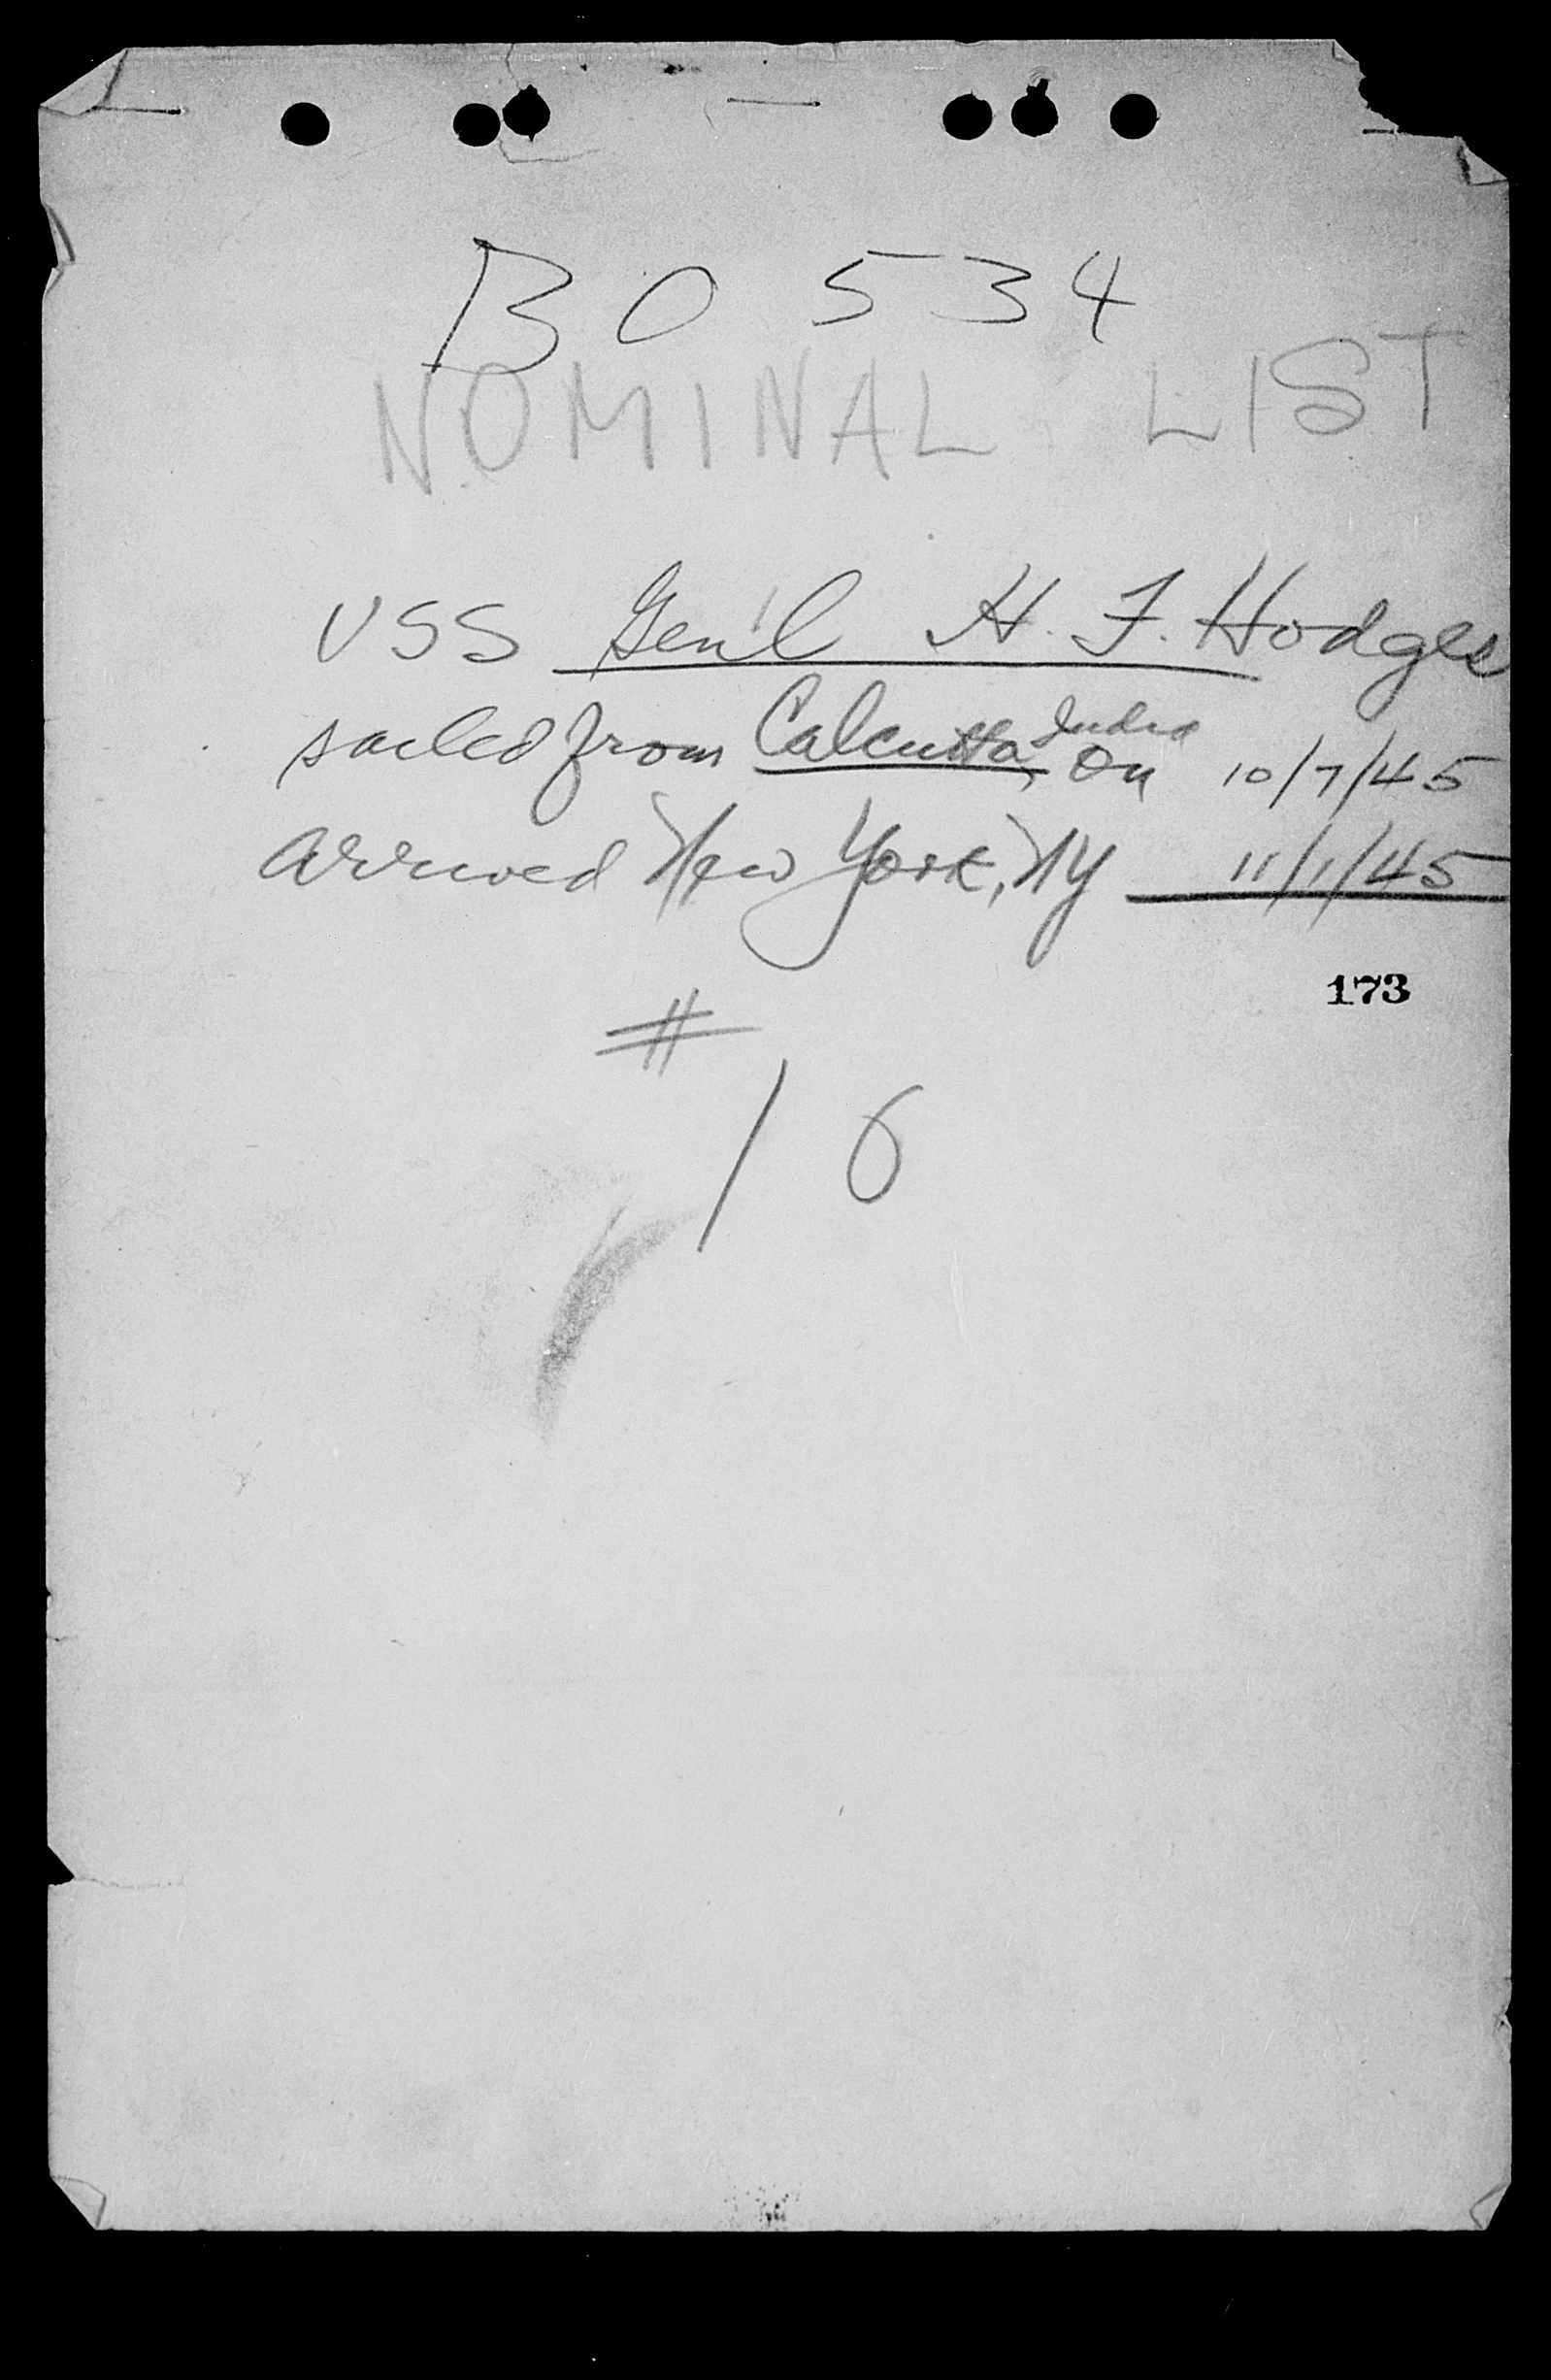 B O 534
NOMINAL LIST
USS Gen'l H. F. Hodges
sailed from Calcutta, India On 10/7/45
arrived New York, NY 11/1/45
173
#
16